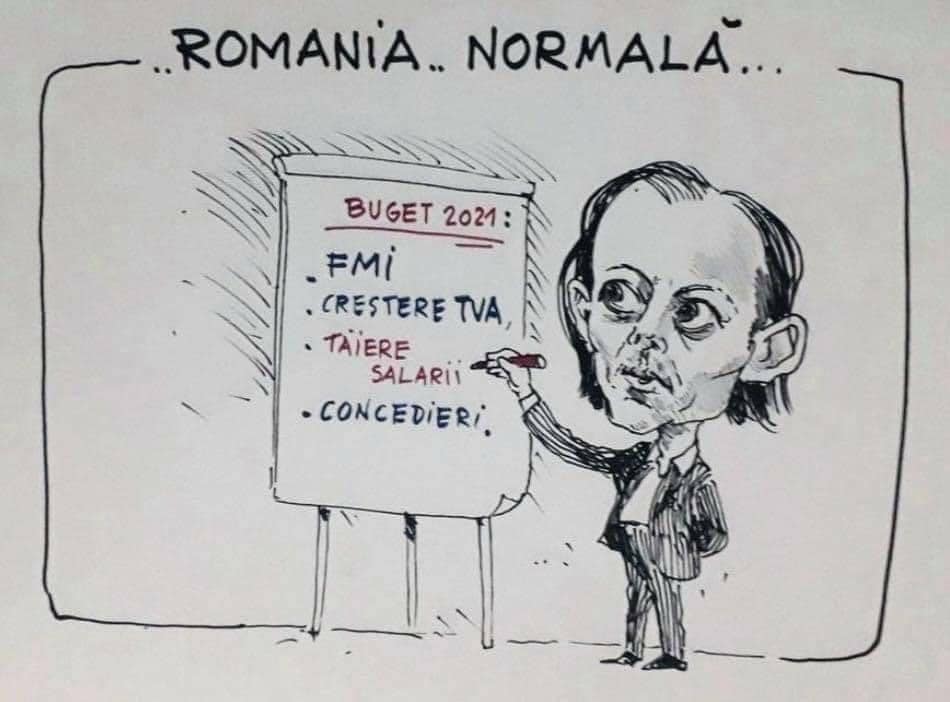 ..ROMANIA.. NORMALĂ...
BUGET 2021:
. FMI
. CREȘTERE TVA,
. TĂIERE
SALARII
. CONCEDIERI.